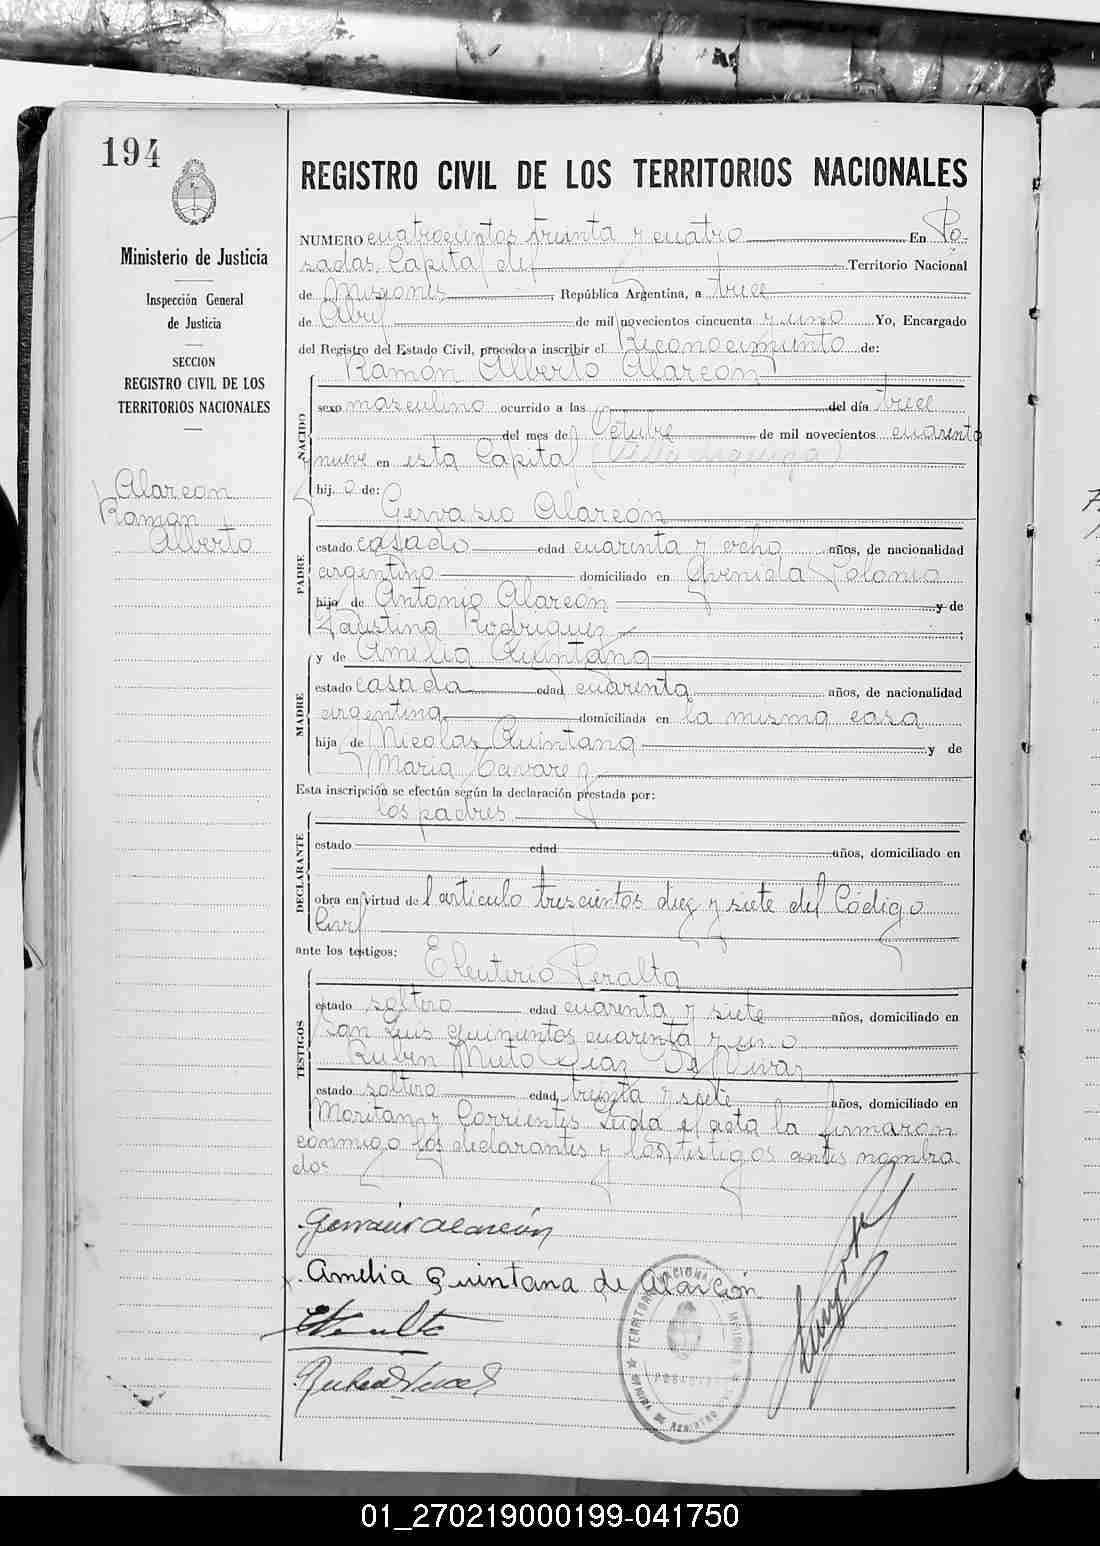 194
REGISTRO CIVIL DE LOS TERRITORIOS NACIONALES
Ministerio de Justicia
Inspección General
de Justicia
SECCION
REGISTRO CIVIL DE LOS
TERRITORIOS NACIONALES
Alarcon
Ramon
Alberto
NUMERO cuatrocientos treinta y cuatro En Po-
sadas, Capital del Territorio Nacional
de Misiones, República Argentina, a trece
de Abril de mil novecientos cincuenta y uno Yo, Encargado
del Registro del Estado Civil, procedo a inscribir el Reconocimiento de:
Ramon Alberto Alarcón
NACIDO
sexo masculino ocurrido a las del día trece
del mes de Octubre de mil novecientos cuarenta
y nueve en esta Capital (Villa Urquiza)
hij o de:
Gervasio Alarcón
PADRE
estado casado edad cuarenta y ocho años, de nacionalidad
argentino domiciliado en Avenida Polonia
hijo de Antonio Alarcón y de
Faustina Rodriguez
y de Amelia Quintana
MADRE
estado casada edad cuarenta años, de nacionalidad
argentina domiciliada en la misma casa
hija de Nicolas Quintana y de
Maria Tavarez
Esta inscripción se efectúa según la declaración prestada por:
los padres
DECLARANTE
estado edad años, domiciliado en
obra en virtud de l articulo trescientos diez y siete del Código
Civil
ante los testigos:
Eleuterio Peralta
TESTIGOS
estado soltero edad cuarenta y siete años, domiciliado en
San Luis quinientos cuarenta y uno
Ruben Nieto Diaz De Vivar
estado soltero edad treinta y siete años, domiciliado en
Moritan y Corrientes Leida el acta la firmaron
conmigo los declarantes y los testigos antes nombra
dos
Gervacio Alarcón
Amelia Quintana de Alarcón
TERRITORIO NACIONAL DE MISIONES
POSADAS
01_270219000199-041750